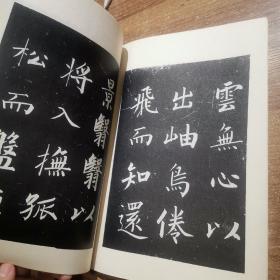 雲無心以
出岫鳥倦
飛而知還
景翳翳以
将入撫孤
松而盤